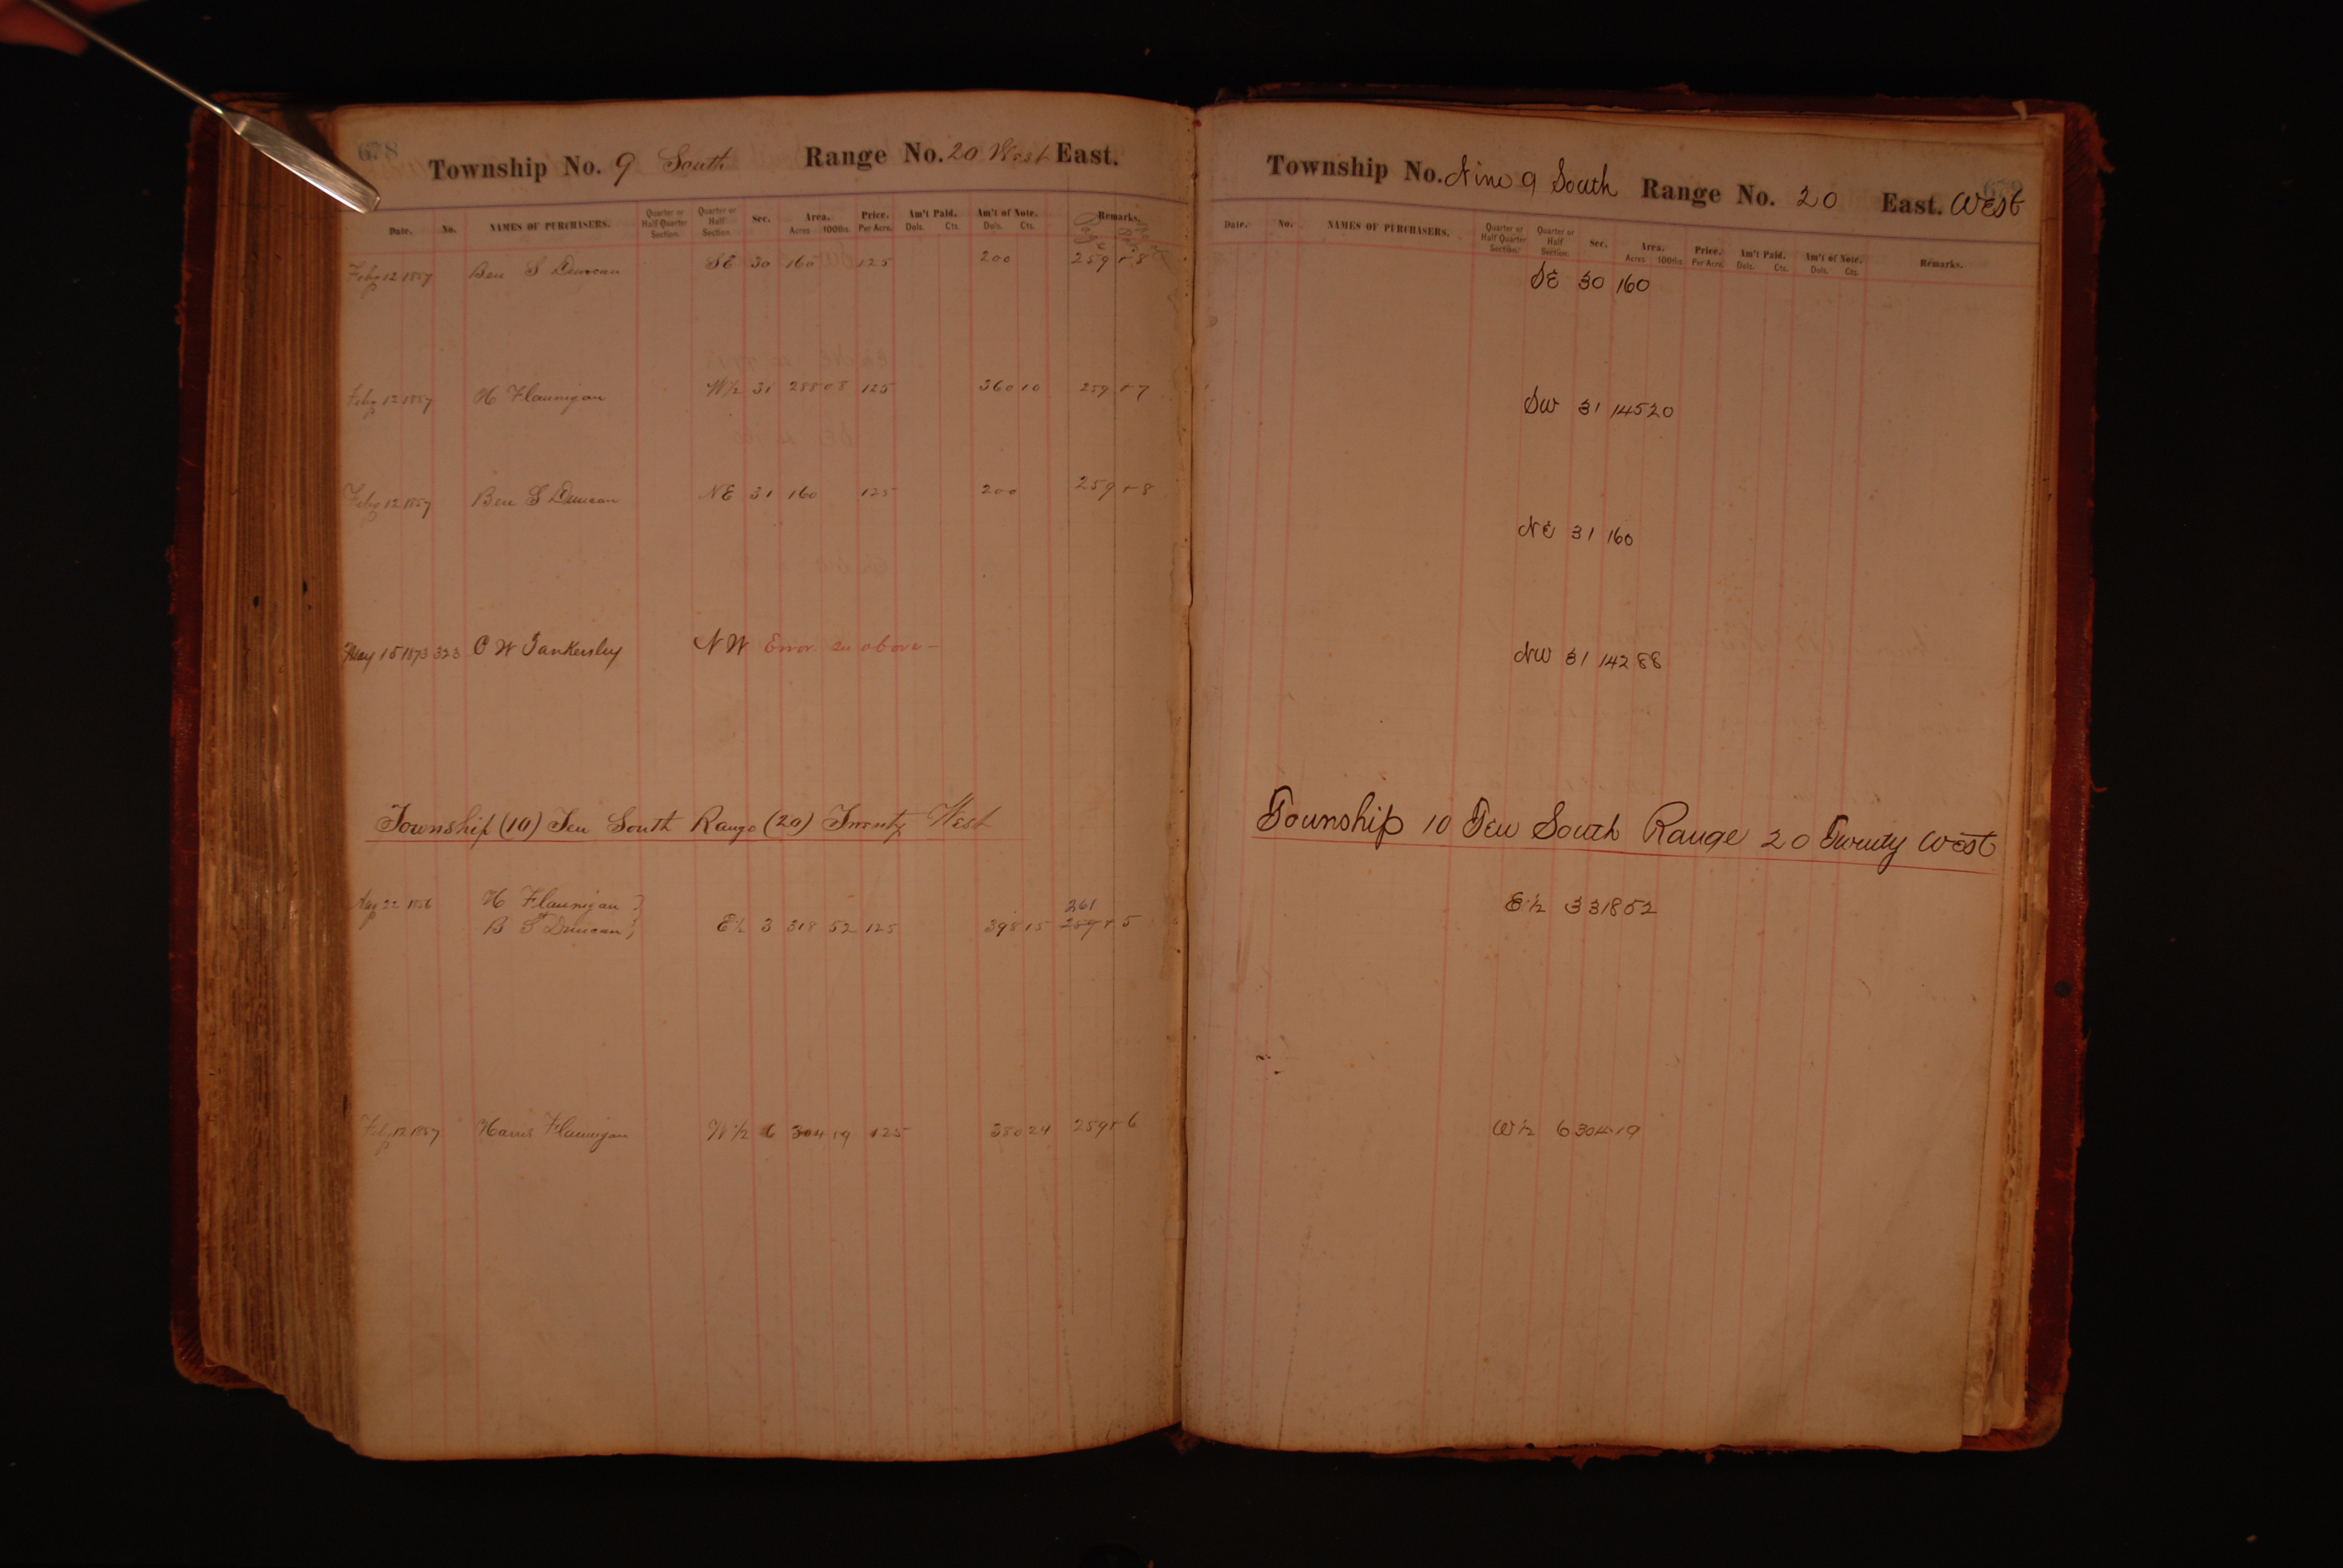 678
Township No. 9 South Range No. 20 West East.
Date. No. NAMES OF PURCHASERS. Quarter or Half Quarter Section. Quarter or Half Section. Sec. Area. Acres 100ths. Price. Per Acre. Am't Paid. Dols. Cts. Am't of Note. Dols. Cts. Remarks.
Page
Feby 12 1857 Ben S Duncan SE 30 160 125 200 259 + 8
Feby 12 1857 H Flannigan W½ 31 288 08 125 360 10 259 + 7
Feby 12 1857 Ben S Duncan NE 31 160 125 200 259 + 8
May 15 1873 323 C W Tankersley NW Error see above —
Township (10) Ten South Range (20) Twenty West
Aug 22 1856 H Flannigan }
261
B S Duncan } E½ 3 318 52 125 398 15 259 + 5
Feby 12 1857 Harris Flannigan W½ 6 304 19 125 380 24 259 + 6
679
Township No. Nine 9 South Range No. 20 East. West
Date. No. NAMES OF PURCHASERS. Quarter or Half Quarter Section. Quarter or Half Section. Sec. Area. Acres 100ths. Price. Per Acre. Am't Paid. Dols. Cts. Am't of Note. Dols. Cts. Remarks.
SE 30 160
SW 31 145 20
NE 31 160
NW 31 142 88
Township 10 Ten South Range 20 Twenty West
E½ 3 318 52
W½ 6 304 19